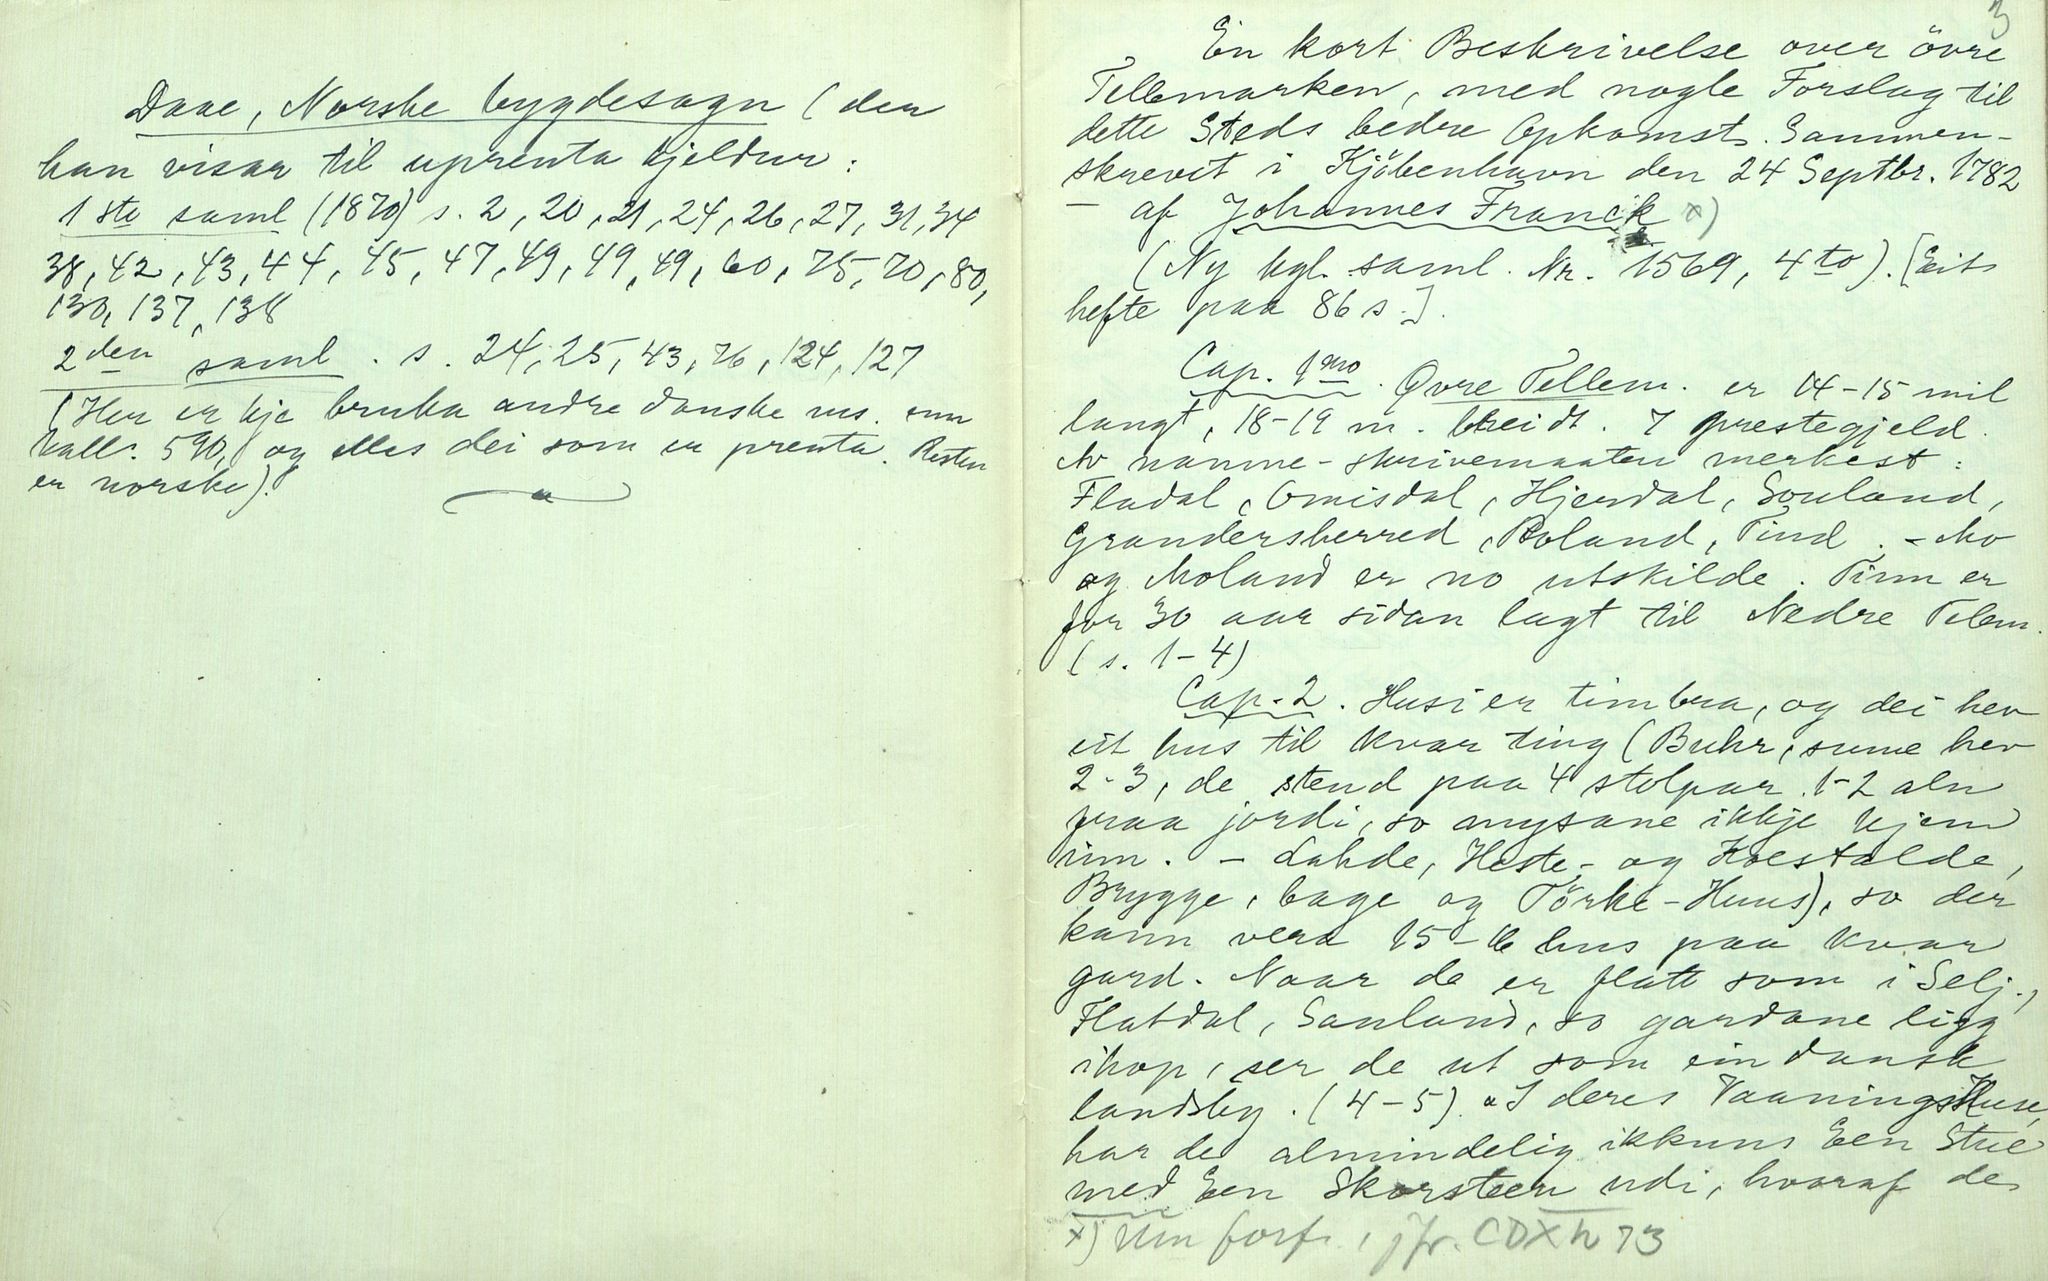 Daae, Norske bygdesagn (der
han visar til uprenta kjeldur:
1ste saml (1870) s. 2, 20, 21, 24, 26, 27, 31, 34
38, 42, 43, 44, 45, 47, 49, 49, 49, 60, 75, 70, 80,
130, 137, 138
2den saml. s. 24, 25, 43, 76, 124, 127
(Her er kje bruka andre danske ms. enn
kall. 590, og elles dei som er prenta. Resten
er norske).
3
En kort Beskrivelse over övre
Tellemarken, med nogle Forslag til
dette Steds bedre Opkomst. Sammen-
skrevit i Kjöbenhavn den 24 Septbr. 1782
– af Johannes Franck x)
(Ny kgl. saml. Nr. 1569, 4to). [Eit
hefte paa 86 s.].
Cap. 1mo. Øvre Tellem. er 14-15 mil
langt, 18-19 m. breidt. 7 prestegjeld.
Av namne-skrivemaaten merkest:
Fladal, Omisdal, Hjerdal, Souland,
Grandersherred, Roland, Tind. – Mo
og Moland er no utskilde. Tinn er
for 30 aar sidan lagt til Nedre Telem.
(s. 1-4)
Cap. 2. Husi er timbra, og dei hev
eit hus til kvar ting (Buhr, sume hev
2-3, de stend paa 4 stolpar 1-2 aln
fraa jordi, so mysane ikkje kjem
inn. – Lahde, Heste- og Koestalde,
Brygge, bage og Törke-Huus), so der
kann vera 15-16 hus paa kvar
gard. Naar de er flatt som i Selj.,
Flatdal, Sauland, so gardane ligg
ihop, ser de ut som ein dansk
landsby. (4-5). "I deres VaaningsHuse,
har de almindelig ikkuns Een Stue
med Een Skorsteen udi, hvoraf de
x) Um forf., jfr. CDXV 73